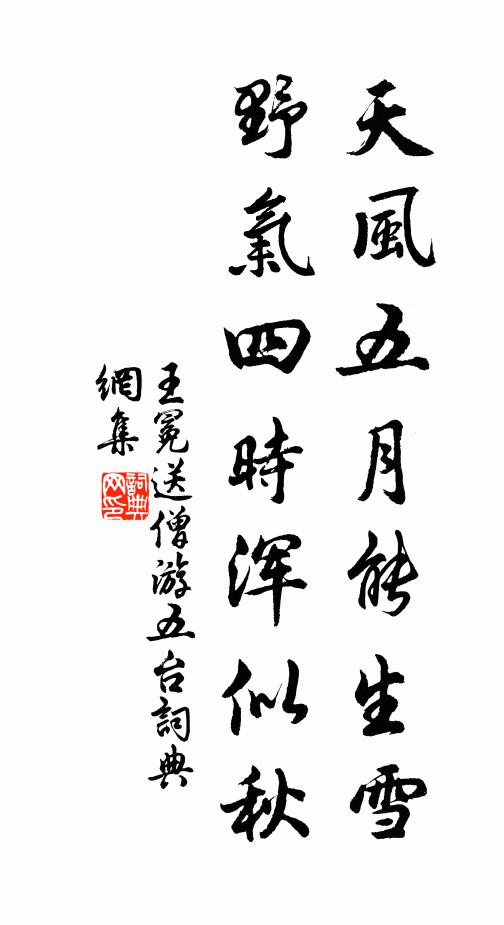 天風五月能生雪
野氣四時渾似秋
王冕送僧游五台詞典
網集
詞典
网印